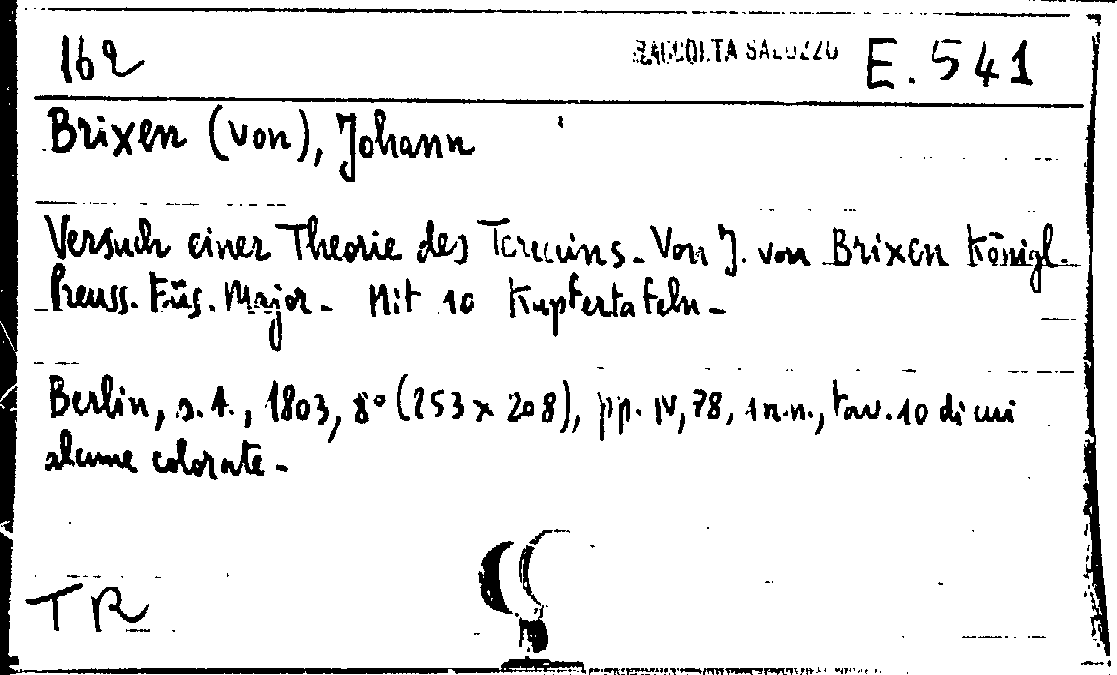 162 RACCOLTA SALUZZO E. 541
Brixen (von), Johann
Versuch einer Theorie des Terrains. Von J. von Brixen Königl.
Preuss. Füs. Major. Mit 10 Kupfertafeln.
Berlin, s. t., 1803, 8° (253 x 208), pp. IV, 78, 1 n.n., tav. 10 di cui
alcune colorate.
TR